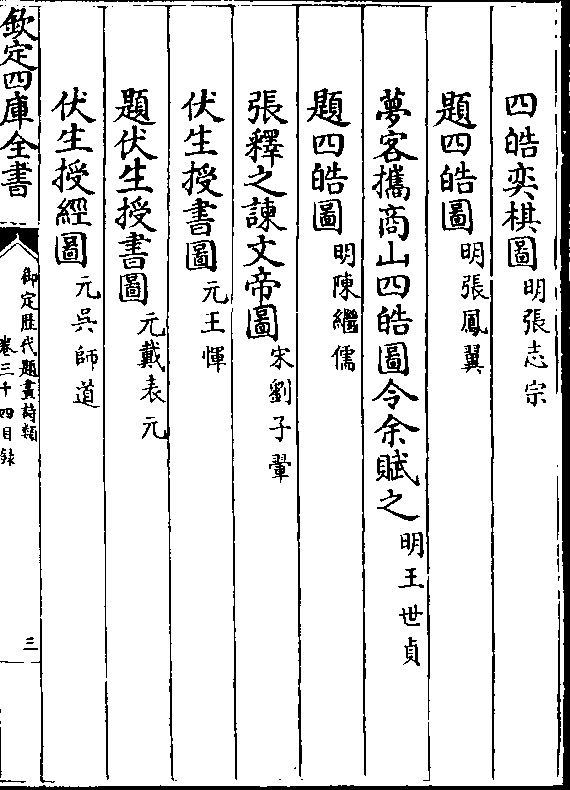 四皓奕棋圖 明張志宗
題四皓圖 明張鳳翼
夢客攜商山四皓圖令余賦之 明王世貞
題四皓圖 明陳繼儒
張釋之諫文帝圖 宋劉子翬
伏生授書圖 元王惲
題伏生授書圖 元戴表元
伏生授經圖 元吳師道
欽定四庫全書
御定歷代題畫詩類
卷三十四目録
三